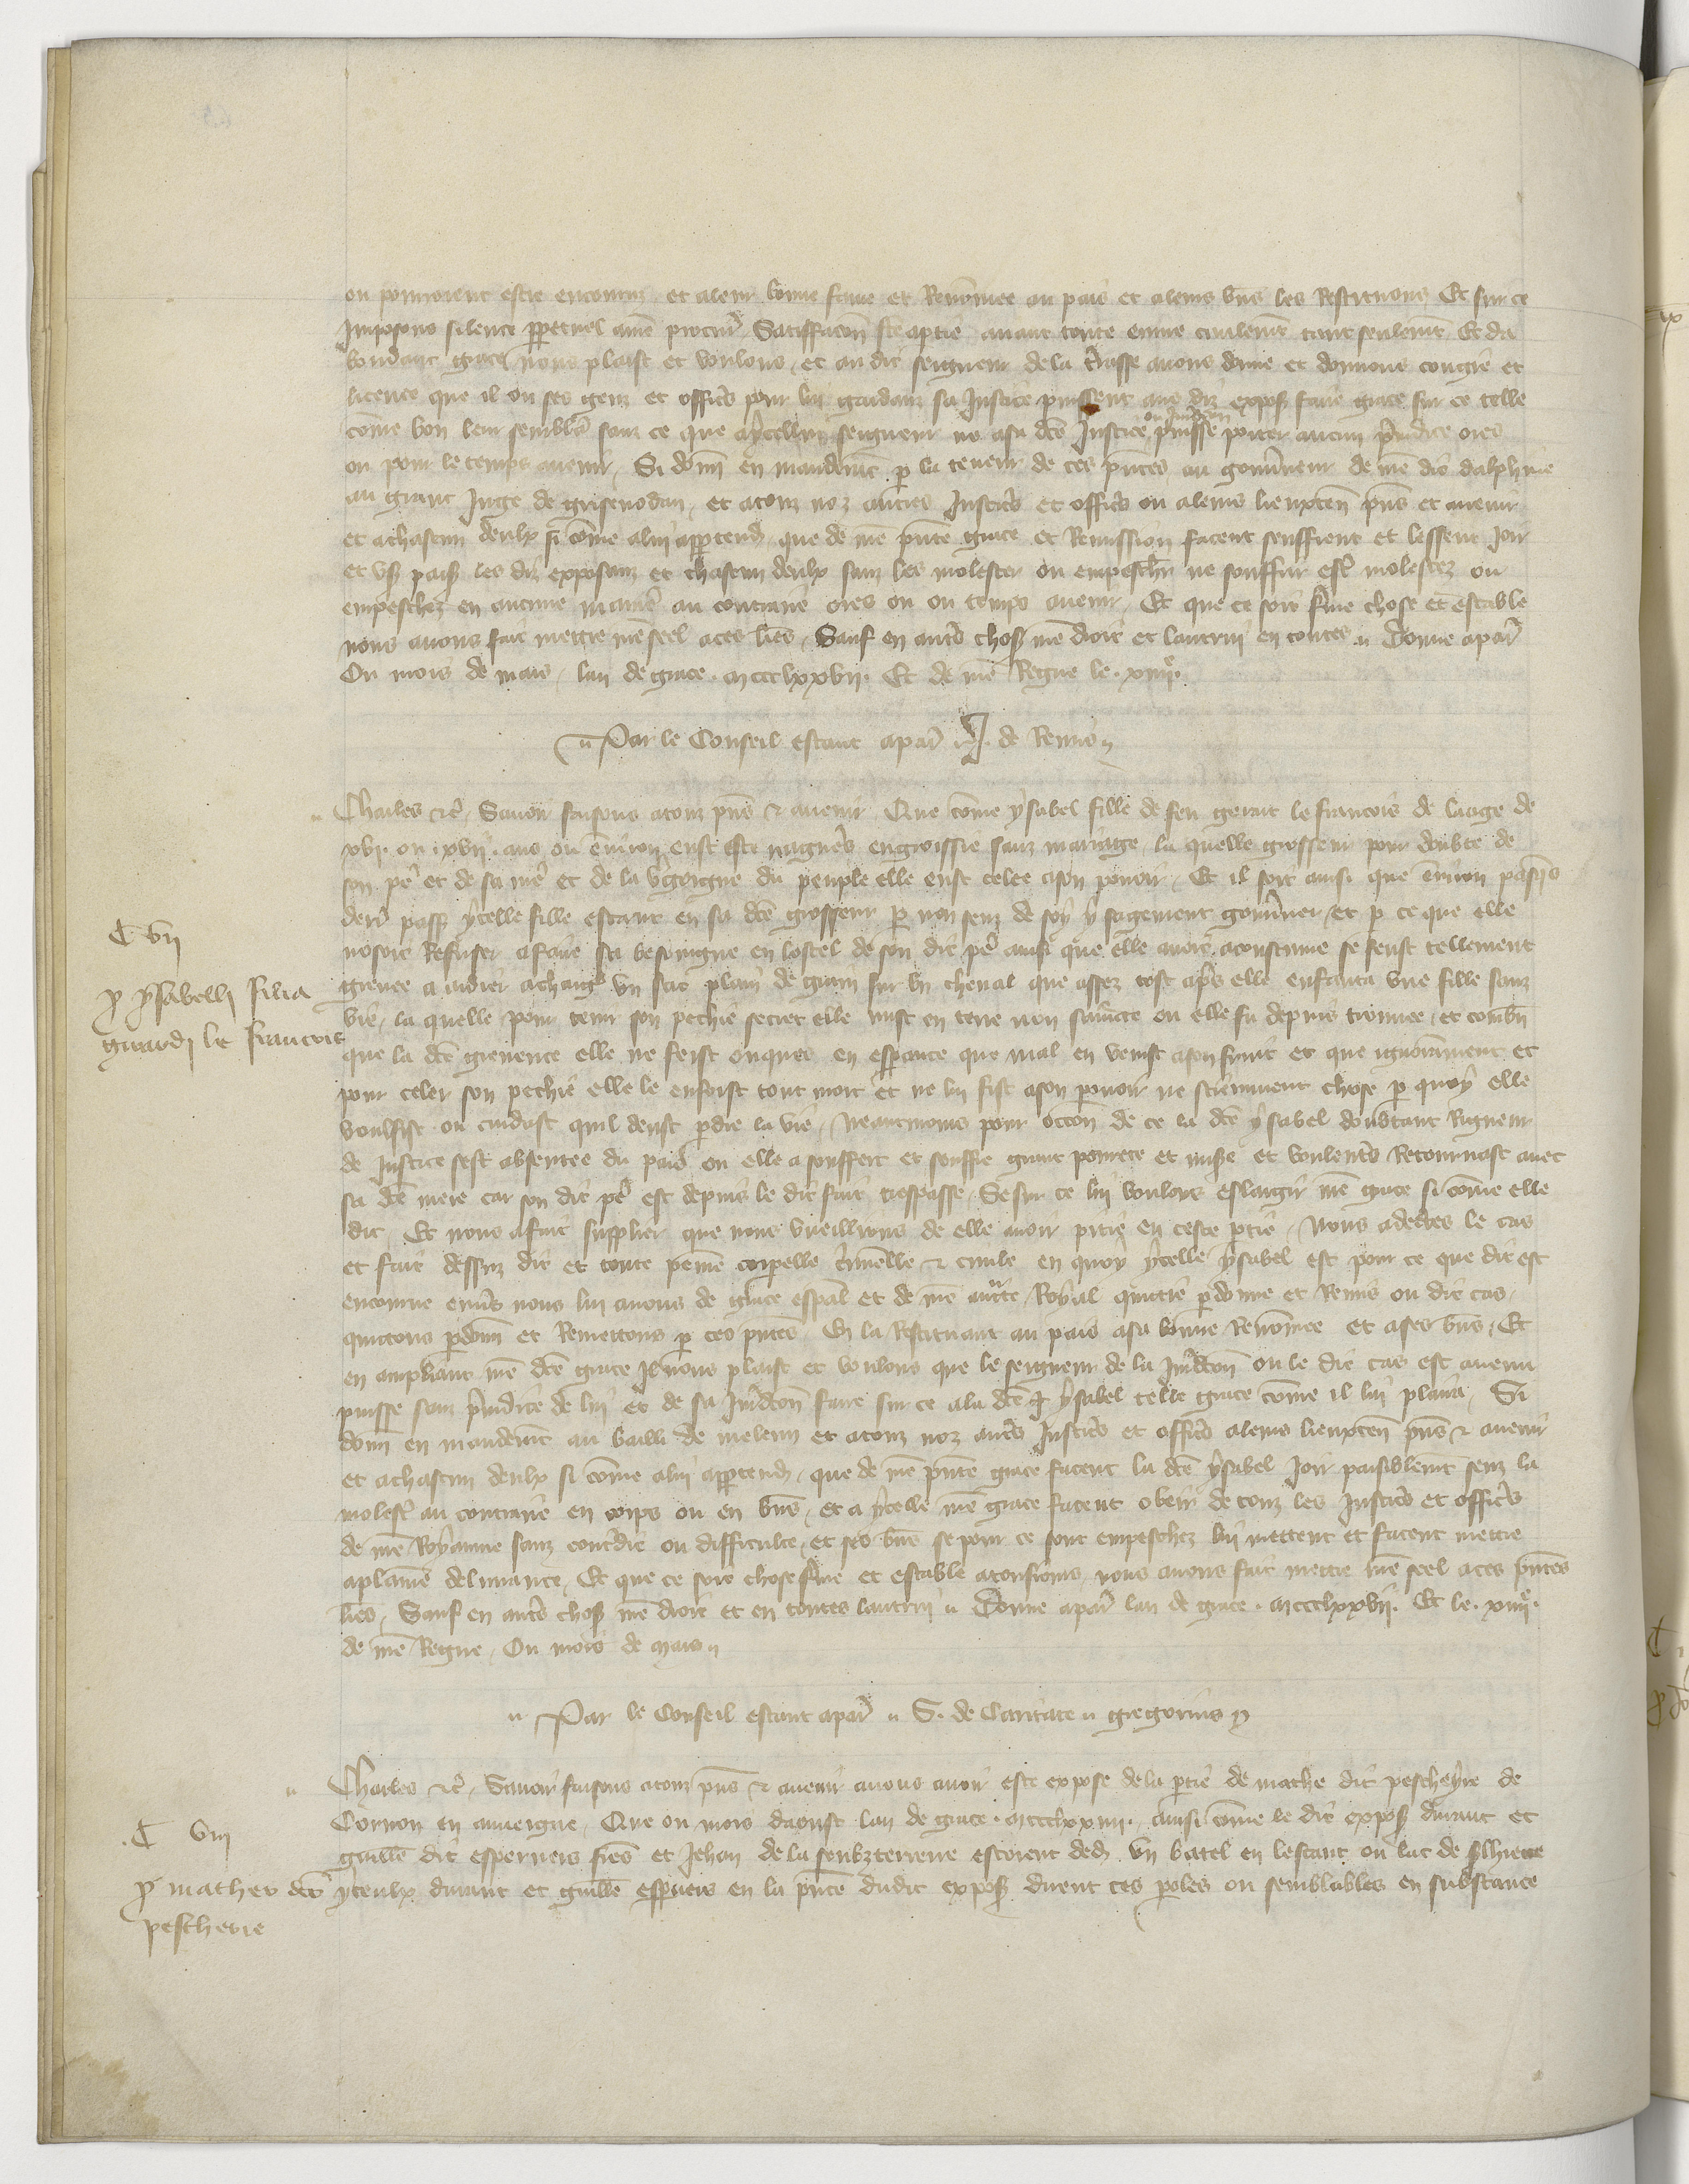 ou pourroient estre encouruz et a leur bonne fame et Renommee au pais et a leurs bns les Restituons Et sur ce
Imposons silence ppetuel a nre procur Satiffacon fte a ptie auant toute euure ciuilemt tant seulemt Et da
bondant grace nous plaist et voulons et au dit seigneur de la asse auons donne et donnons congie et
licence que il ou ses genz et offics pour lui gardanz sa Justice puissent aus diz expos faire grace sur ce telle
come bon leur semblera sanz ce que a ycellui seigneur ne a sa dce Justice puisse porter aucun preiudice ores
ou pour le temps auenir Si donn en mandemt p la teneur de ces pntes au gouuneur de nre dit dalphine
au grant Juge de grisenodan et a touz noz autres Justics et offics ou a leurs lieuxten pns et auenir
et a chascun deulx si come a lui apptend que de nre pnte grace et Remission facent seuffrent et lessent Joir
et vs paisi les diz exposanz et chascun deulx sanz les molester ou empeschr ne souffrir estre molestez ou
empeschez en aucune maniere au contraire ores ou ou temps auenir Et que ce soit ferme chose et estable
nous auons fait mettre nre seel a ces lres Sauf en autres choses nre droit et lautrui en toutes Donne a paris
Ou mois de mars lan de grace mccclxxvii Et de nre Regne le xiiiie
Par le Conseil estant a paris J. de Remis
Charles etc Sauoir faisons a touz pns et auenir Que come ysabel fille de feu gerart le francois de laage de
xvi ou xvii ans ou enuiron eust este nagueres engroissie sanz mariage la quelle grosseur pour doubte de
son pere et de sa mere et de la vgoigne du peuple elle eust celee a son pouoir Et il soit ainsi que enuiron pasqs
dern pass ycelle fille estant en sa dce grosseur p non senz de soy y sagement gouuner et p ce que elle
nosoit Refuser a faire sa besoingne en lostel de son dit pere ainsi que elle auoit acoustume se feust tellement
greuee a aidier a charger vn sac plain de grain sur vn cheual que assez tost apres elle enfanta vne fille sanz
vie la quelle pour tenir son pechie secret elle mist en terre non saincte ou elle fu depuis trouuee et combn
que la dce greuence elle ne feist onques en esperance que mal en venist a son fruit et que ignoramment et
pour celer son pechie elle le enfoist tout mort et ne lui fist a son pouoir ne sciemment chose p quoy elle
voulsist ou cuidast quil deust pdre la vie Neantmoins pour occon de ce la dce ysabel doubtant Rigueur
de Justice sest absentee du pais ou elle a souffert et souffre grant pourete et mise et voulentrs Retournast auec
sa dce mere car son dit pere est depuis le dit fait trespasse Se sur ce lui voulons eslargir nre grace si come elle
dit Et nous a fait supplier que nous vueillions de elle auoir pitie en ceste ptie Nous adecertes le cas
et fait dessuz dit et toute peine corpelle criminelle et ciuile en quoy ycelle ysabel est pour ce que dit est
encourue enuers nous lui auons de grace espal et de nre auctte Royal quittie pdonne et Remis ou dit cas
quictons pdonn et Remettons p ces pntes En la Restituant au pais a sa bonne Renommee et a ses bns Et
en ampliant nre dce grace Il nous plaist et voulons que le seigneur de la Jurdicon ou le dit cas est auenu
puisse sanz preiudice de lui et de sa Jurdicon faire sur ce a la dce ysabel telle grace come il lui plaira Si
donn en mandemt au bailli de meleun et a touz noz autres Justics et offics a leurs lieuxten pns et auenir
et a chascun deulx si come a lui apptend que de nre pnte grace facent la dce ysabel Joir paisiblemt senz la
molest au contraire en corps ou en bns et a ycelle nre grace facent obeir de touz les Justics et offics
de nre Royaume sanz contredit ou difficulte et ses bns se pour ce sont empeschez lui mettent et facent mettre
a plaine deliurance Et que ce soit chose ferme et estable a tousiours nous auons fait mettre nre seel a ces pntes
lres Sauf en autres choses nre droit et en toutes lautrui Donne a paris lan de grace mccclxxvii Et le xiiiie
de nre Regne Ou mois de mars
Par le Conseil estant a paris S. de Caritate gregorius
Charles etc Sauoir faisons a touz pns et auenir a nous auoir este expose de la ptie de mathe dit pescheyre de
Cornon en auuergne Que ou mois daoust lan de grace mccclxxiiii ainsi come le dit expos durant et
guille dit esperuers freres et Jehan de la soubzterrene estoient deds vn batel en lestant ou lac de
yceulx durant et guille espuers en la pnce dudit expos dirent ces proles ou semblables en substance
C vii
p ysabelli filia
girardi le francois
C viii
p matheo dcto
pescherie